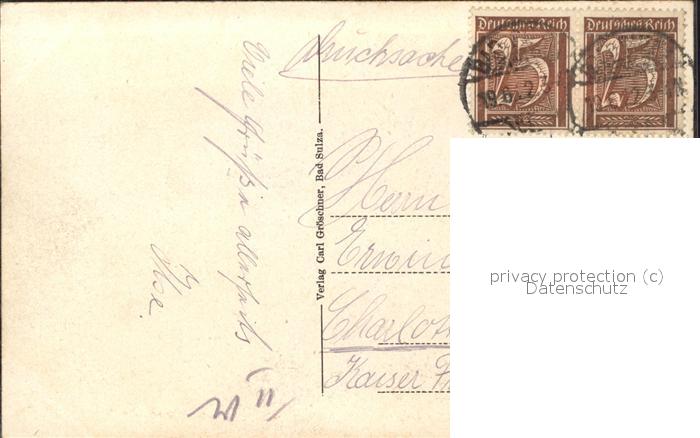 Drucksache
Deutsches Reich
25
Deutsches Reich
25
Viele Grüße allerseits
Ilse.
Verlag Carl Gröschner, Bad Sulza.
Herrn
Erwin
Charlot
Kaiser Fr
privacy protection (c)
Datenschutz